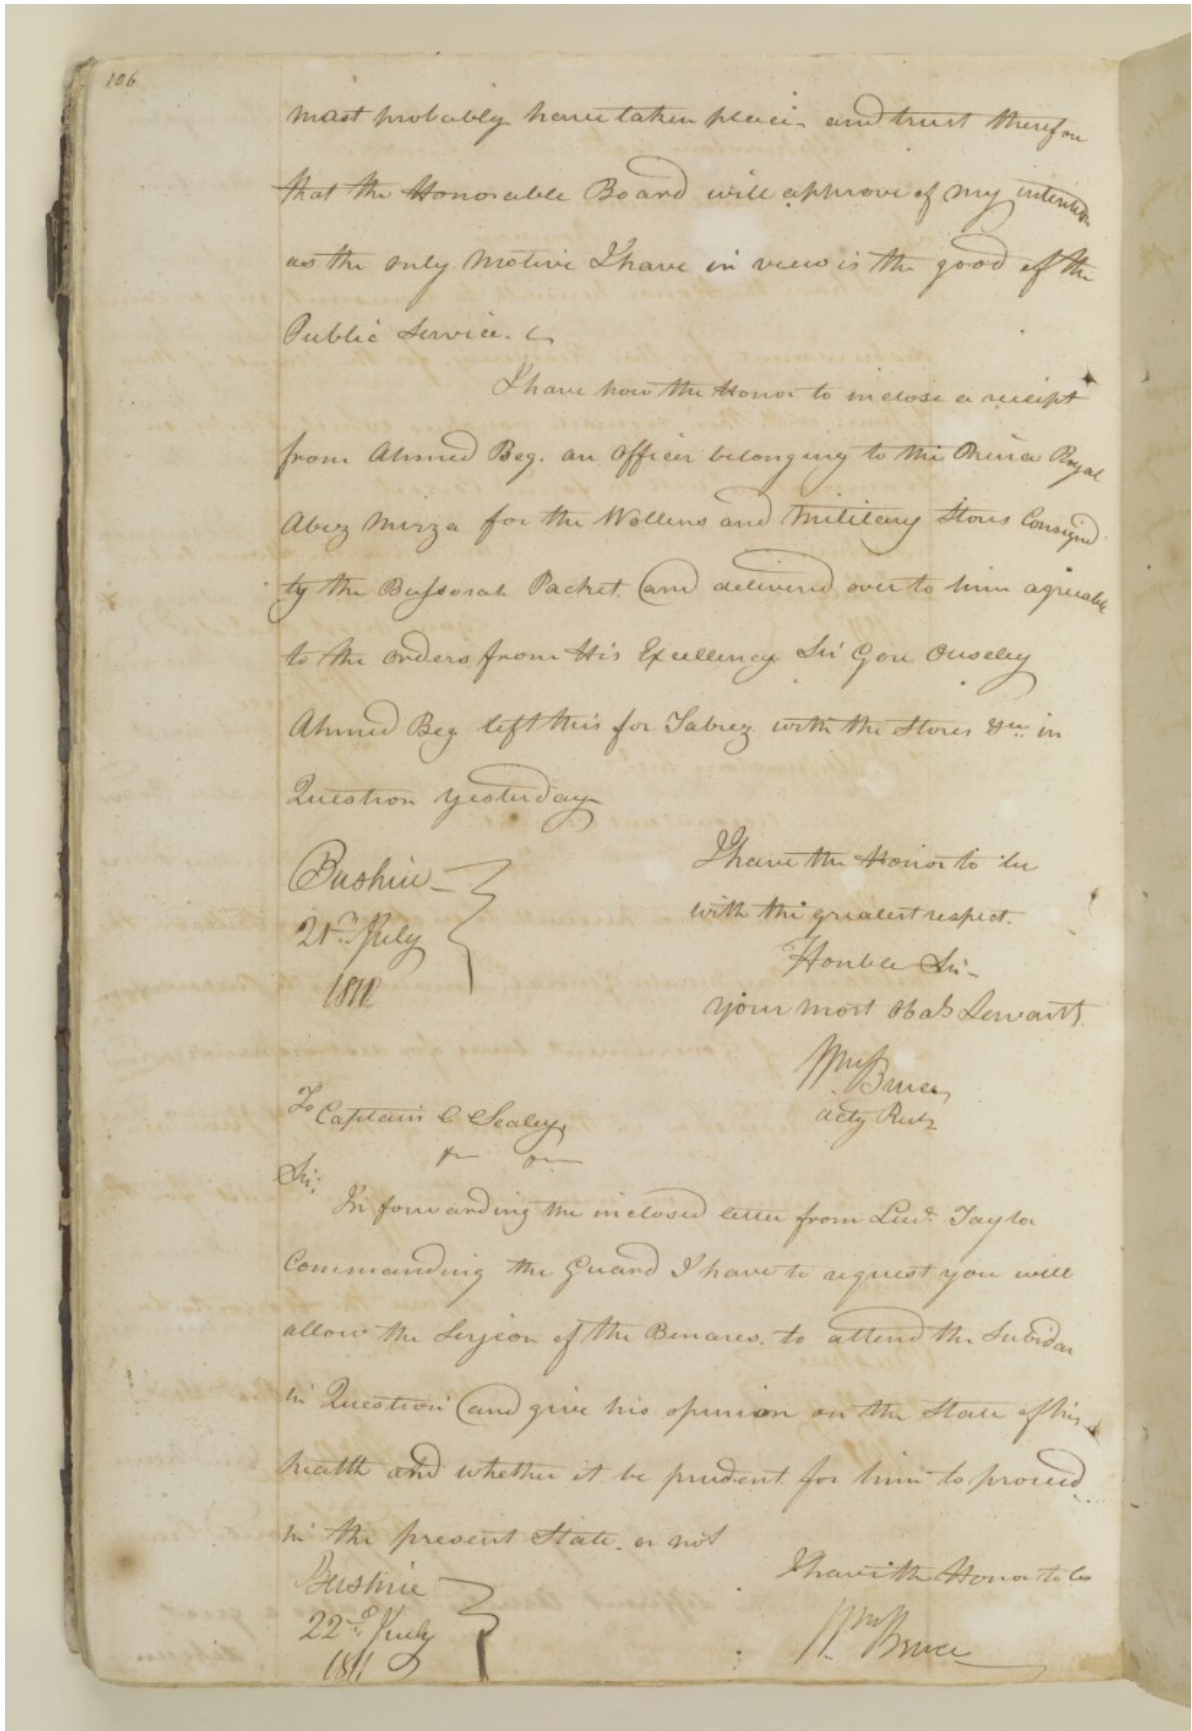 106
most probably have taken place and trust therefore
that the Honorable Board will approve of my intention
as the only motive I have in view is the good of the
Public Service.
I have now the Honor to inclose a receipt
from Ahmed Beg. an Officer belonging to the Prince Royal
Abez Mirza for the Wollens and Military Stores Consigned
by the Bussorah Packet and delivered over to him agreeable
to the orders from His Excellency Sir Gore Ouseley
Ahmed Beg left this for Tabrez with the Stores &ca in
Question yesterday
Bushire
21st July
I have the Honor to be
with the greatest respect.
Honble Sir
your most Obdt Servant
Wm Bruce
actg Rest
To Captain C Sealey
Sir,
In forwarding the inclosed letter from Lieut. Taylor
Commanding the Guard I have to request you will
allow the Surjeon of the Benares. to attend the Subidar
in Question and give his opinion on the State of his
health and whether it be prudent for him to proceed
in the present State. or not
Bushire
22nd July
1811
I have the Honor to be
Wm Bruce